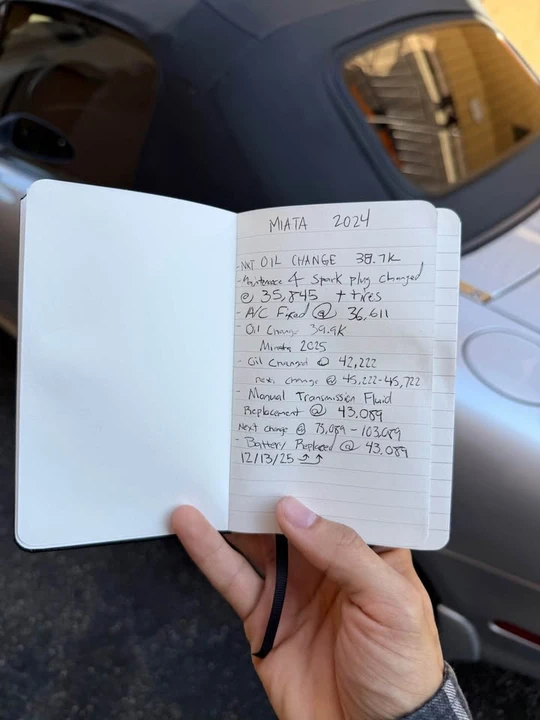 MIATA 2024
- NXT OIL CHANGE 38.7K
- Maintenance & Spark plug changed
@ 35,845 + tires
- A/C Fixed @ 36,611
- Oil Change 39.9K
Miata 2025
- Oil Changed @ 42,222
next change @ 45,222-45,722
- Manual Transmission Fluid
Replacement @ 43.089
Next change @ 73,089 - 103,089
- Battery Replaced @ 43.089
12/13/25